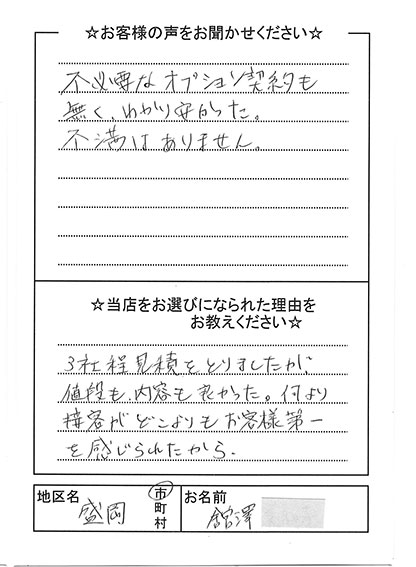 ☆お客様の声をお聞かせください☆
不必要なオプション契約も
無く、わかり安かった。
不満はありません。
☆当店をお選びになられた理由を
お教えください☆
3社程見積をとりましたが、
値段も、内容も良かった。何より
接客がどこよりもお客様第一
を感じられたから。
地区名 盛岡 市町村 お名前 舘澤